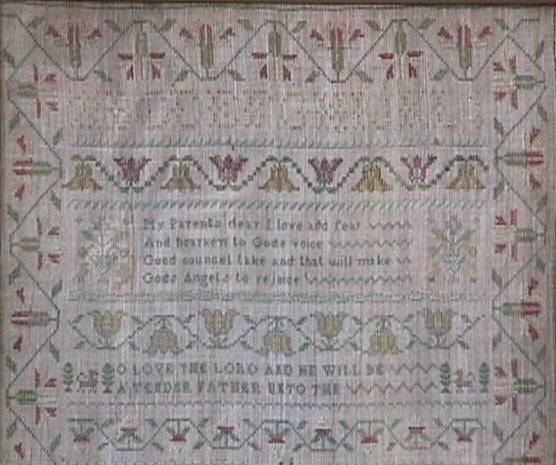 My Parents dear I love and fear
And hearken to Gods voice
Good councel take and that will make
Gods Angels to rejoice
O LOVE THE LORD AND HE WILL BE
A TENDER FATHER UNTO THE